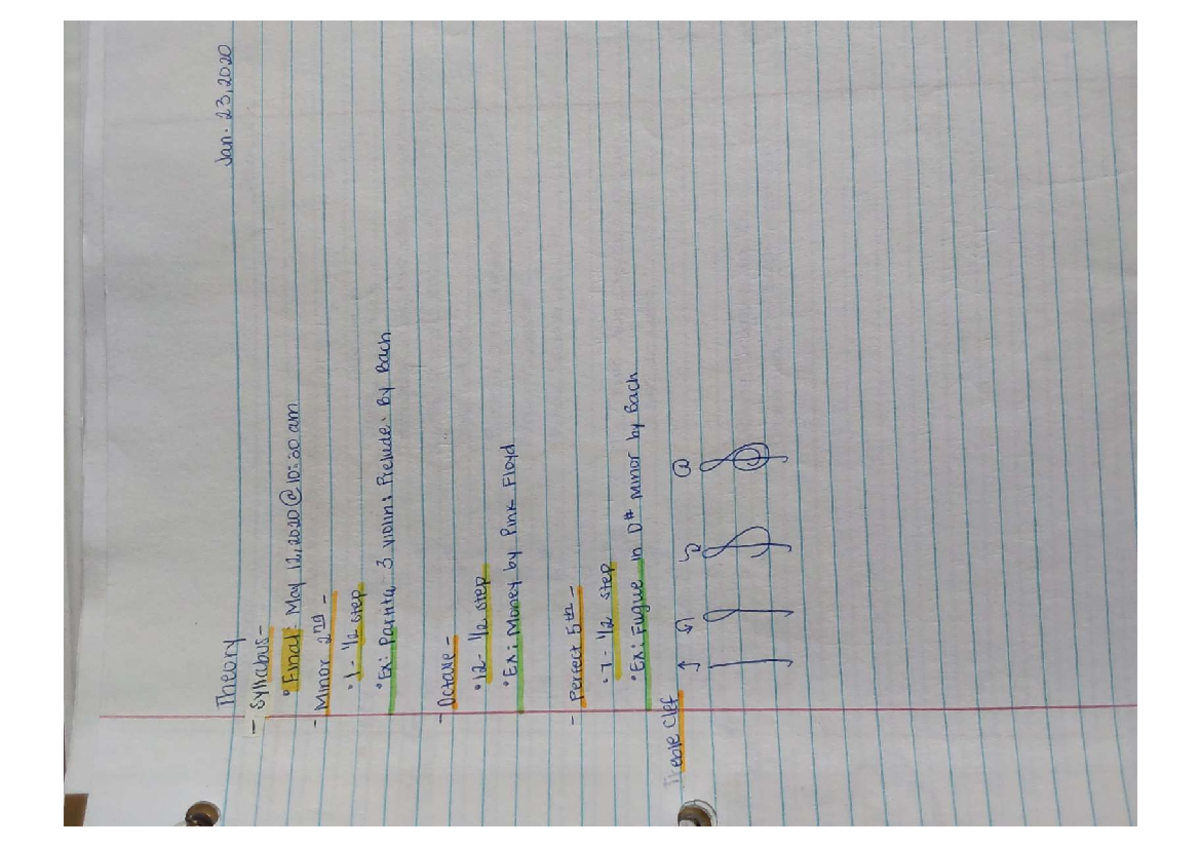 Theory Jan. 23, 2020
- Syllabus -
• Final: May 12, 2020 @ 10:30 am
- Minor 2nd -
• 1 - 1/2 step
• Ex: Partita 3 violin: Prelude. By Bach
- Octave -
• 12 - 1/2 step
• Ex: Money by Pink Floyd
- Perfect 5th -
• 7 - 1/2 step
• Ex: Fugue in D# minor by Bach
Treble Clef